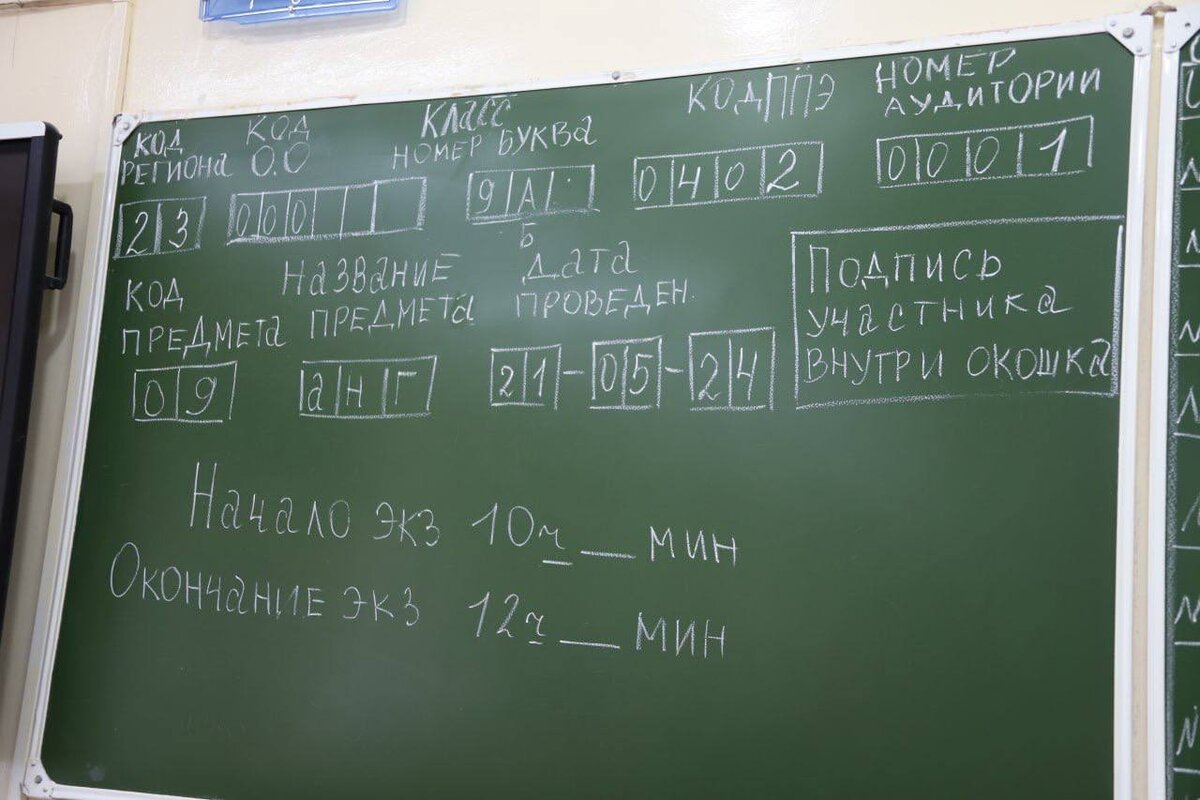 КОД РЕГИОНА
23
КОД О.О
000
КЛАСС
НОМЕР БУКВА
9А
Б
КОД ППЭ
0402
НОМЕР АУДИТОРИИ
0001
КОД ПРЕДМЕТА
09
НАЗВАНИЕ ПРЕДМЕТА
анг
ДАТА ПРОВЕДЕН.
21-05-24
Подпись
участника
внутри окошка
Начало экз 10ч __ мин
Окончание экз 12ч __ мин